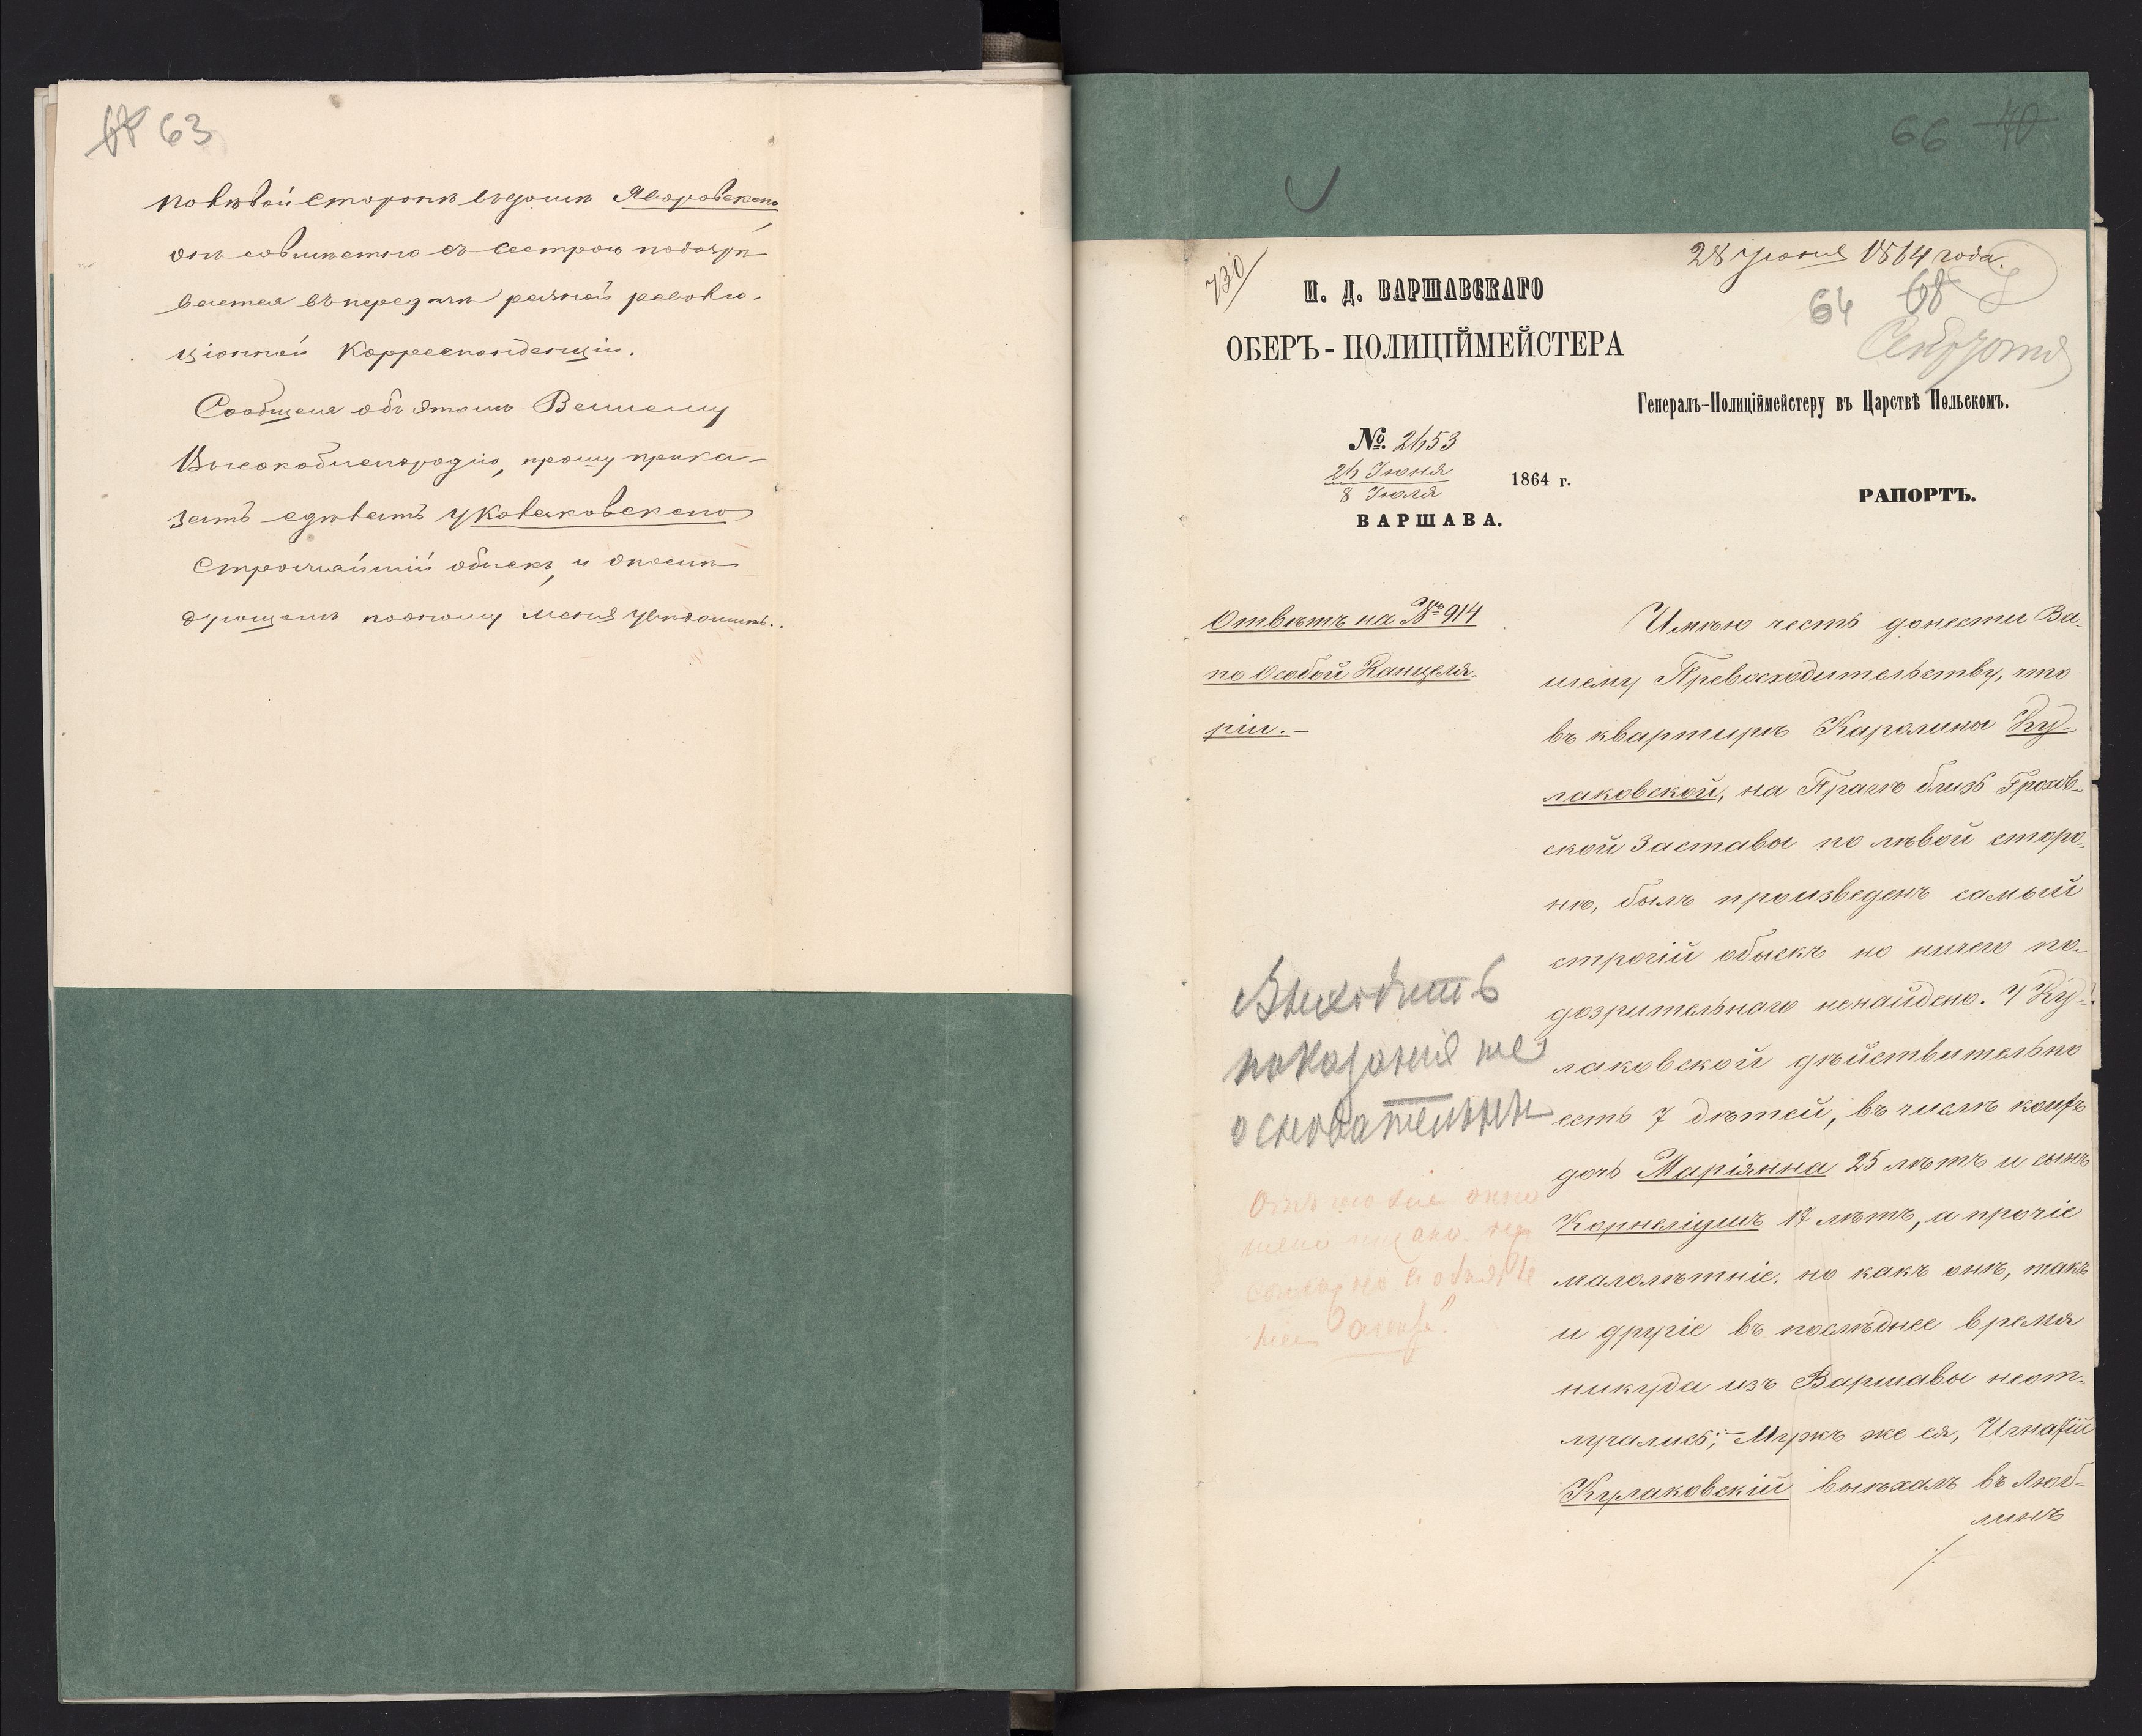 63
по лѣвой сторонѣ въ домѣ Яворовскаго
онъ совмѣстно съ сестрою подозрѣ
вается въ передачи разной револю-
ціонной корреспонденціи.
Сообщая объ этомъ Вашему
Высокоблагородію, прошу прика-
зать сдѣлать у Колаковскаго
строжайшій обыскъ, и о послѣ
дующемъ почтому меня увѣдомить.
66 70
730
28 Іюня 1864 года.
64 68
И. Д. ВАРШАВСКАГО
ОБЕРЪ-ПОЛИЦІЙМЕЙСТЕРА
Генералъ-Полиціймейстеру въ Царствѣ Польскомъ.
№. 2653
26 Іюня
8 Іюля
1864 г.
ВАРШАВА.
РАПОРТЪ.
Отвѣтъ на № 914
по Особой Канцеля-
ріи.-
Имѣю честь донести Ва-
шему Превосходительству, что
въ квартирѣ Каролины Ку-
лаковской, на Прагѣ близь Грохов-
ской Заставы по лѣвой сторо-
нѣ, былъ произведенъ самый
строгій обыскъ но ничего по-
дозрительнаго ненайдено. У Ку-
лаковской дѣйствительно
есть 7 дѣтей, въ числѣ коихъ
дочь Маріянна 25 лѣтъ и сынъ
Корнеліушъ 17 лѣтъ, а прочіе
малолѣтніе, но какъ онѣ, такъ
и другіе въ послѣднее время
никуда изъ Варшавы неот-
лучались; Мужъ же ея, Игнатій
Кулаковскій выѣхалъ въ Люб-
линъ
Выходитъ
показанія не
основательны